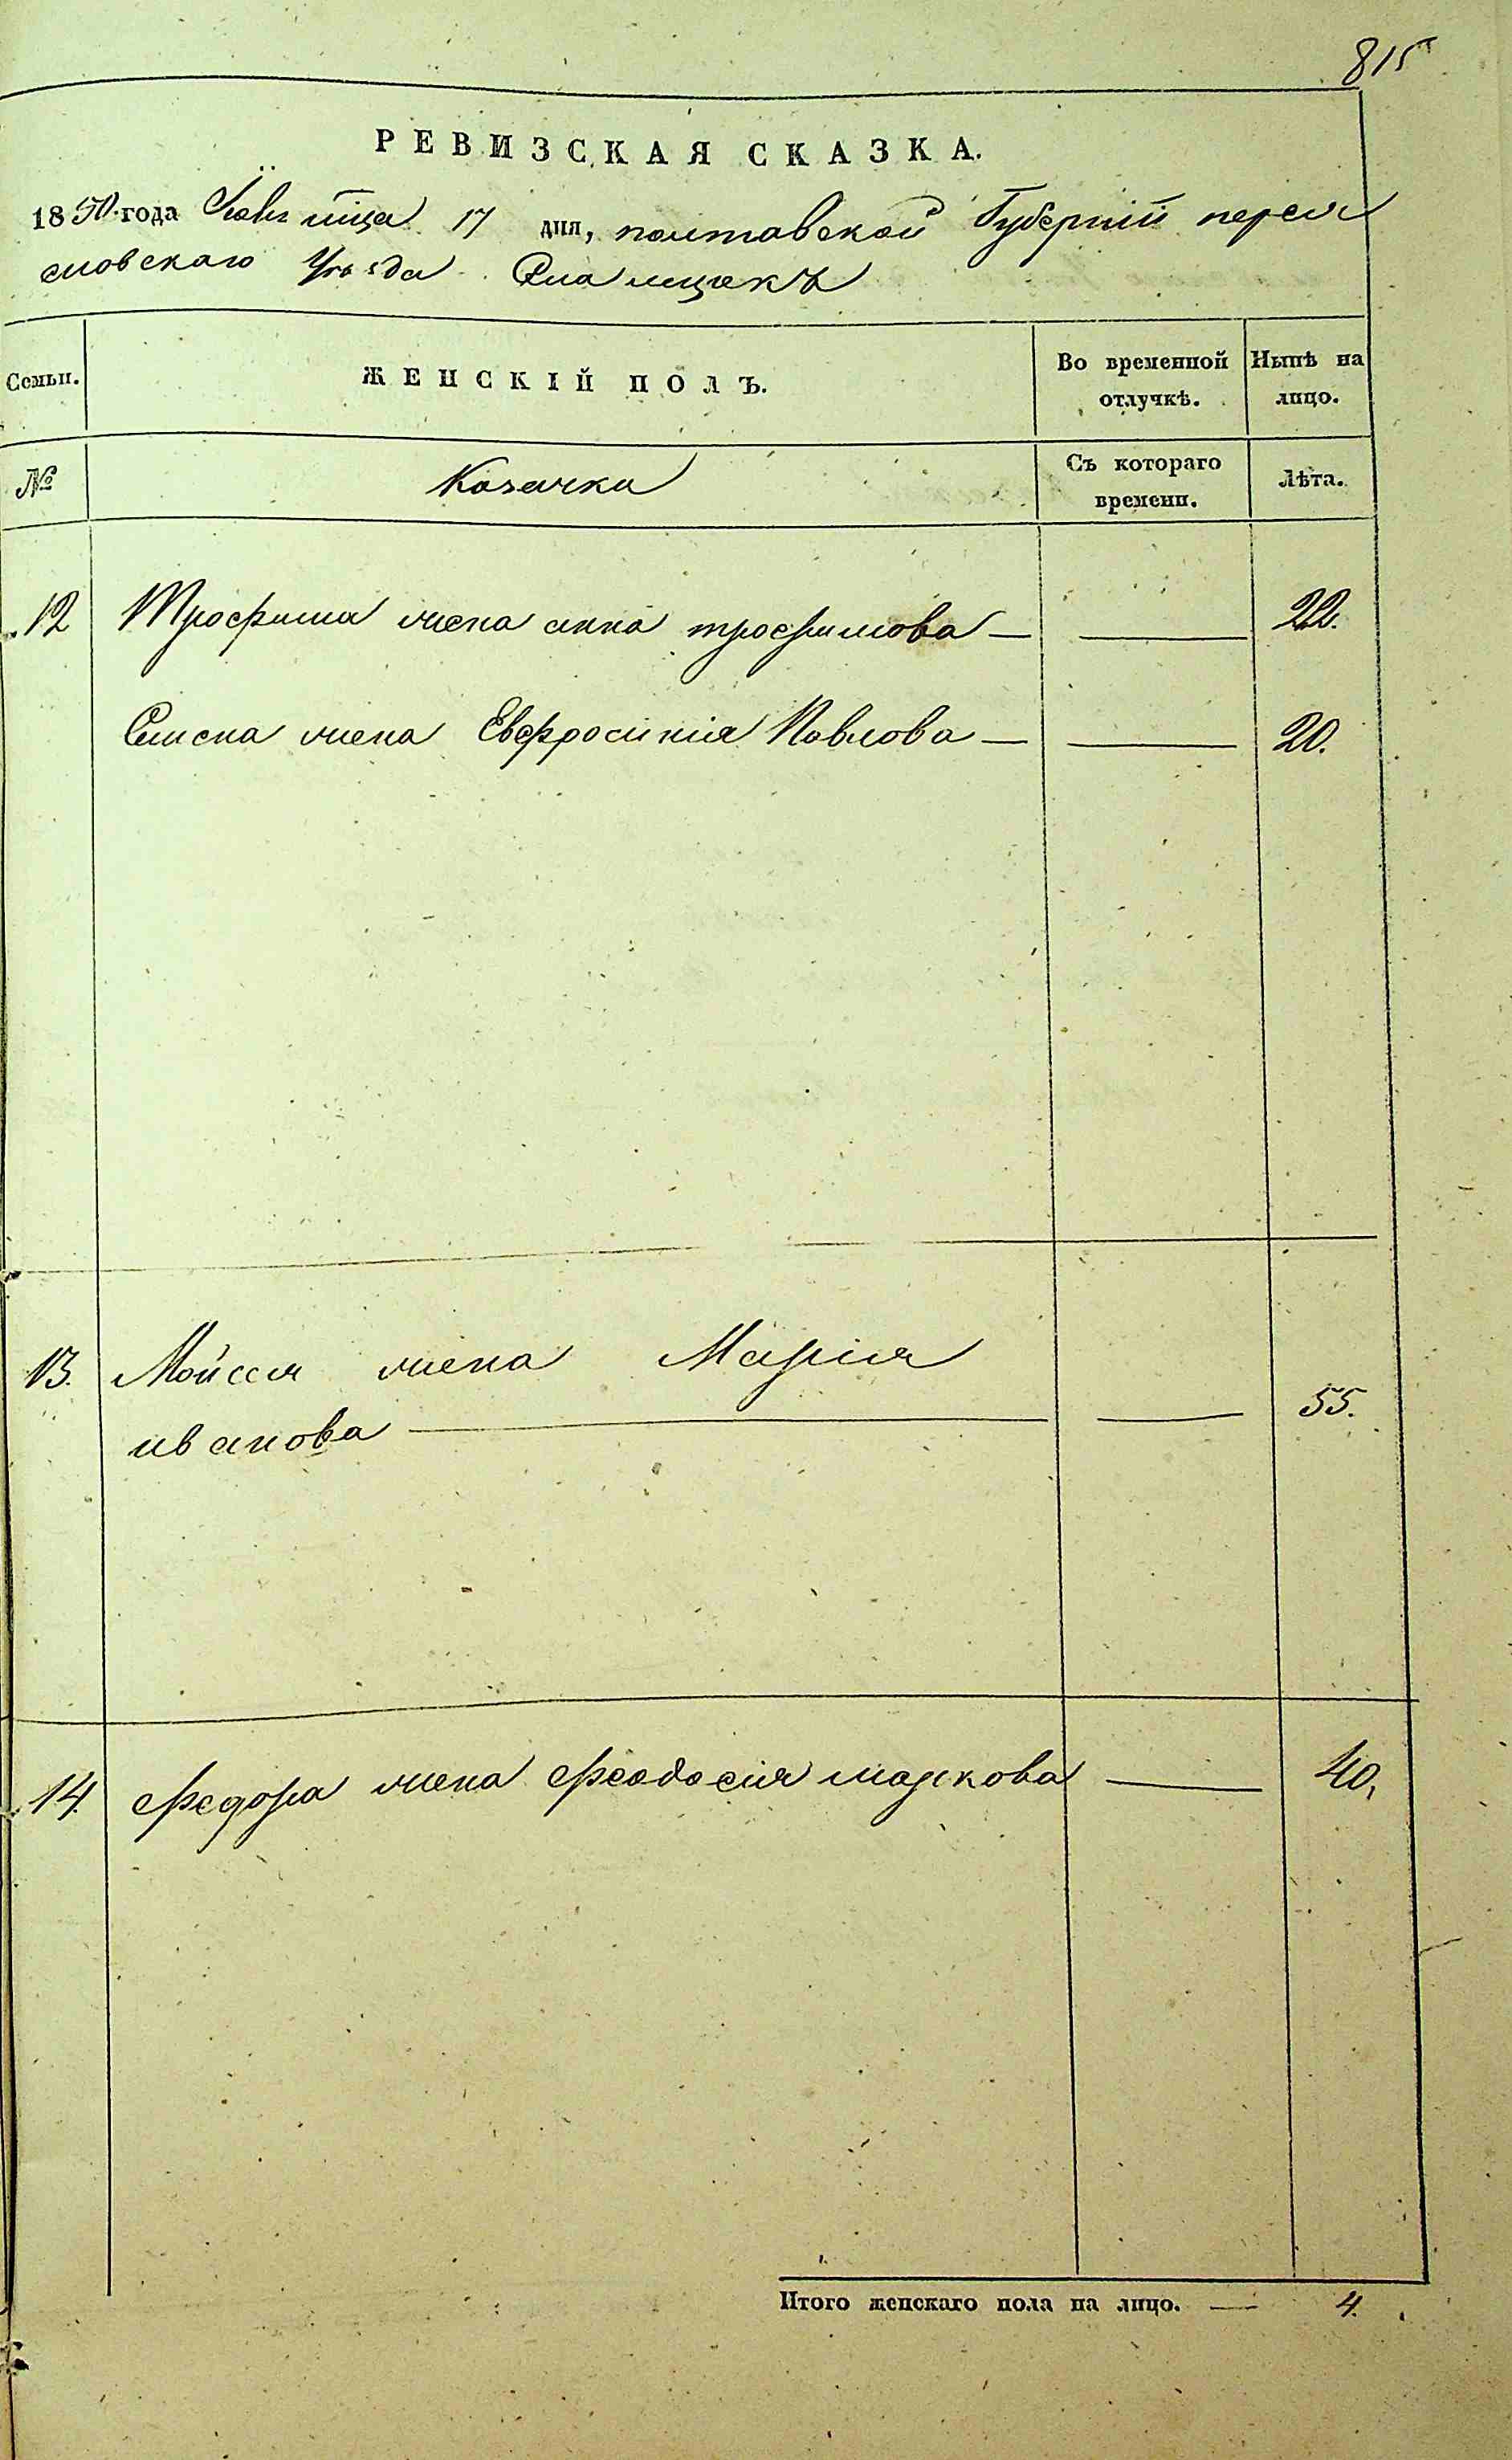 815
РЕВИЗСКАЯ СКАЗКА.
1850 года мца 17 дня, полтавской Губерніи перея
словскаго Уезда
Семьи. ЖЕНСКІЙ ПОЛЪ. Во временной отлучкѣ. Нынѣ на лицо.
№ Козачки Съ котораго времени. Лѣта.
12 Трофима жена анна трофимова — — 22.
жена Евфросинія Павлова — — 20.
13. Мойсея жена Марія
иванова — — 55.
14. Федора жена Феодосія маркова — 40,
Итого женскаго пола на лицо. — 4.